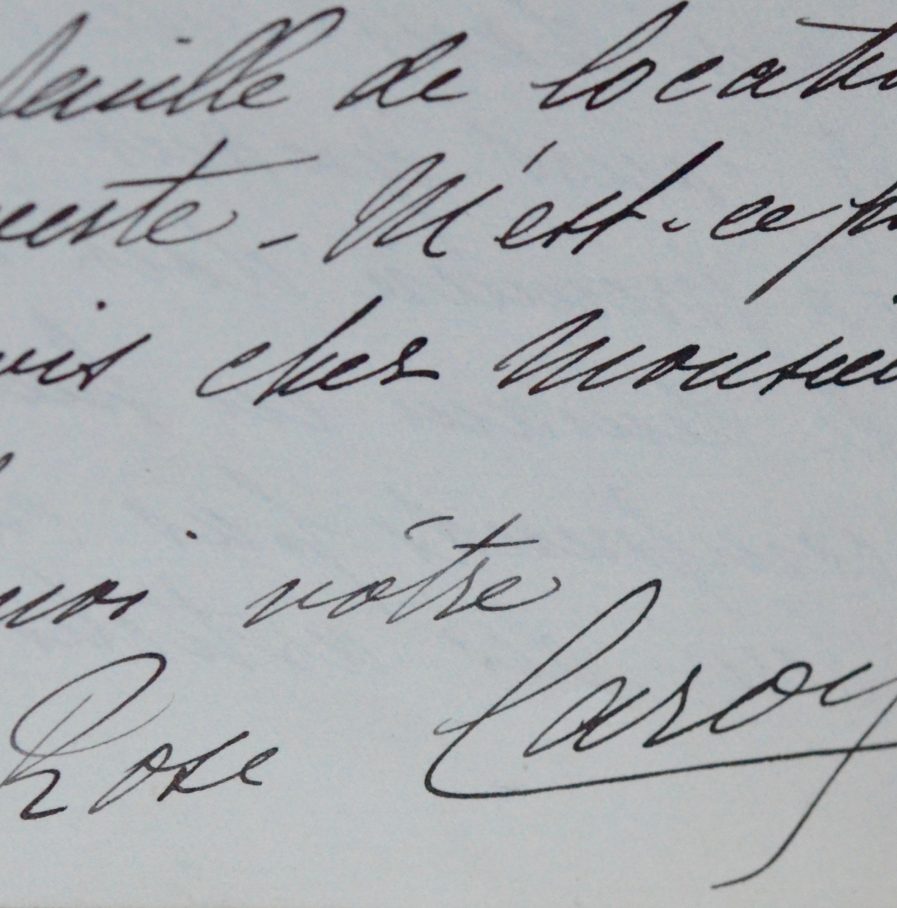 feuille de locatio
reste - N'est-ce pa
vis cher Monsieu
moi vôtre
Rose Caroy